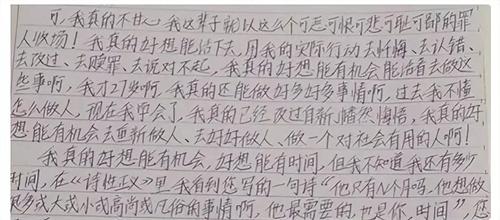 可，我真的不甘心我这辈子就以这么个可恶可恨可悲可耻可鄙的罪
人收场！我真的好想能活下去，用我的实际行动去忏悔、去认错、
去改过、去赎罪、去说对不起，我真的好想能有机会能活着去做这
些事啊，我才27岁啊，我真的还能做好多好多事情啊，过去我不懂
怎么做人，现在我学会了，我真的已经改过自新、幡然悔悟，我真的好
想能有机会去重新做人、去好好做人、做一个对社会有用的人啊！
我真的好想能有机会，好想能有时间，但我不知道我还有多少
时间，在《诗性正义》里我有到您写的一句诗“他只有N个月吗，他想做
很多或大或小或高尚或凡俗的事情啊，他最需要的，也是你，时间”，您